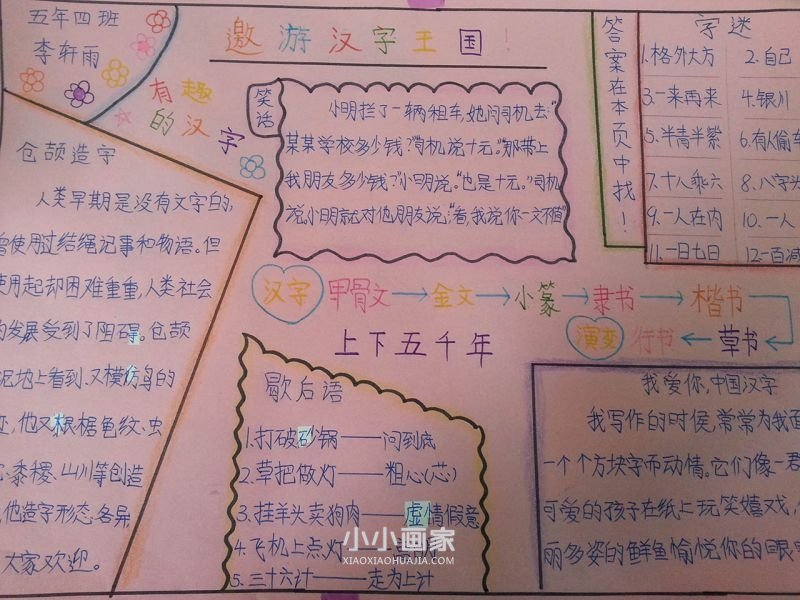 五年四班
李轩雨
邀游汉字王国!
有趣
的汉字
仓颉造字
人类早期是没有文字的,
曾使用过结绳记事和物语。但
使用起却困难重重,人类社会
的发展受到了阻碍。仓颉
泥地上看到,又模仿鸟的
迹,他又根据龟纹、虫
黍稷、山川等创造
他造字形态各异
大家欢迎。
笑话
小明拦了一辆租车,她问司机去:“
某某学校多少钱?”司机说十元。“那带上
我朋友多少钱?”小明说。“也是十元。”司机
说,小明就对他朋友说:“看,我说你一文不值”
答案在本页中找!
字迷
1.格外大方 2.自己
3.一来再来 4.银川
5.半青半紫 6.有人偷车
7.十人乘六 8.八字头
9.一人在内 10.一人
11.一日七日 12.一百减
汉字 甲骨文→金文→小篆→隶书→楷书
演变 行书←草书
上下五千年
歇后语
1.打破砂锅——问到底
2.草把做灯——粗心(芯)
3.挂羊头卖狗肉——虚情假意
4.飞机上点灯
5.三十六计——走为上计
我爱你,中国汉字
我写作的时侯,常常为我面
一个个方块字而动情。它们像一君
可爱的孩子在纸上玩笑嬉戏,
丽多姿的鲜鱼愉悦你的眼
小小画家
XIAOXIAOHUAJIA.COM